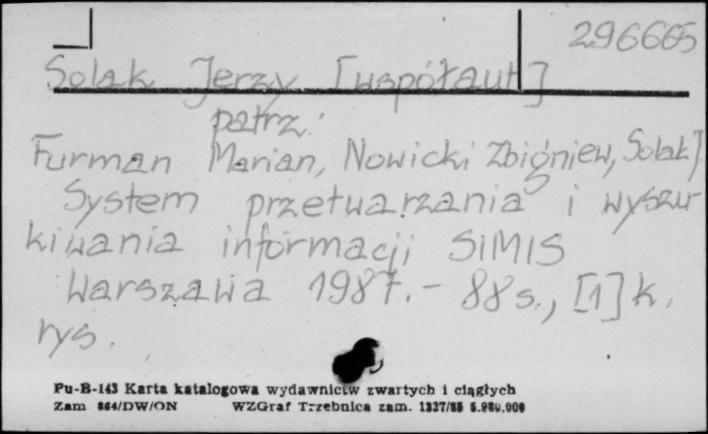 296665
Solak Jerzy [współaut]
patrz:
Furman Marian, Nowicki Zbigniew, Solak J.
System przetwarzania i wyszu-
kiwania informacji SIMIS
Warszawa 1987. - 88 s., [1] k.
rys.
Pu-B-143 Karta katalogowa wydawnictw zwartych i ciągłych
Zam 864/DW/ON WZGraf Trzebnica zam. 1337/85 5.980.000